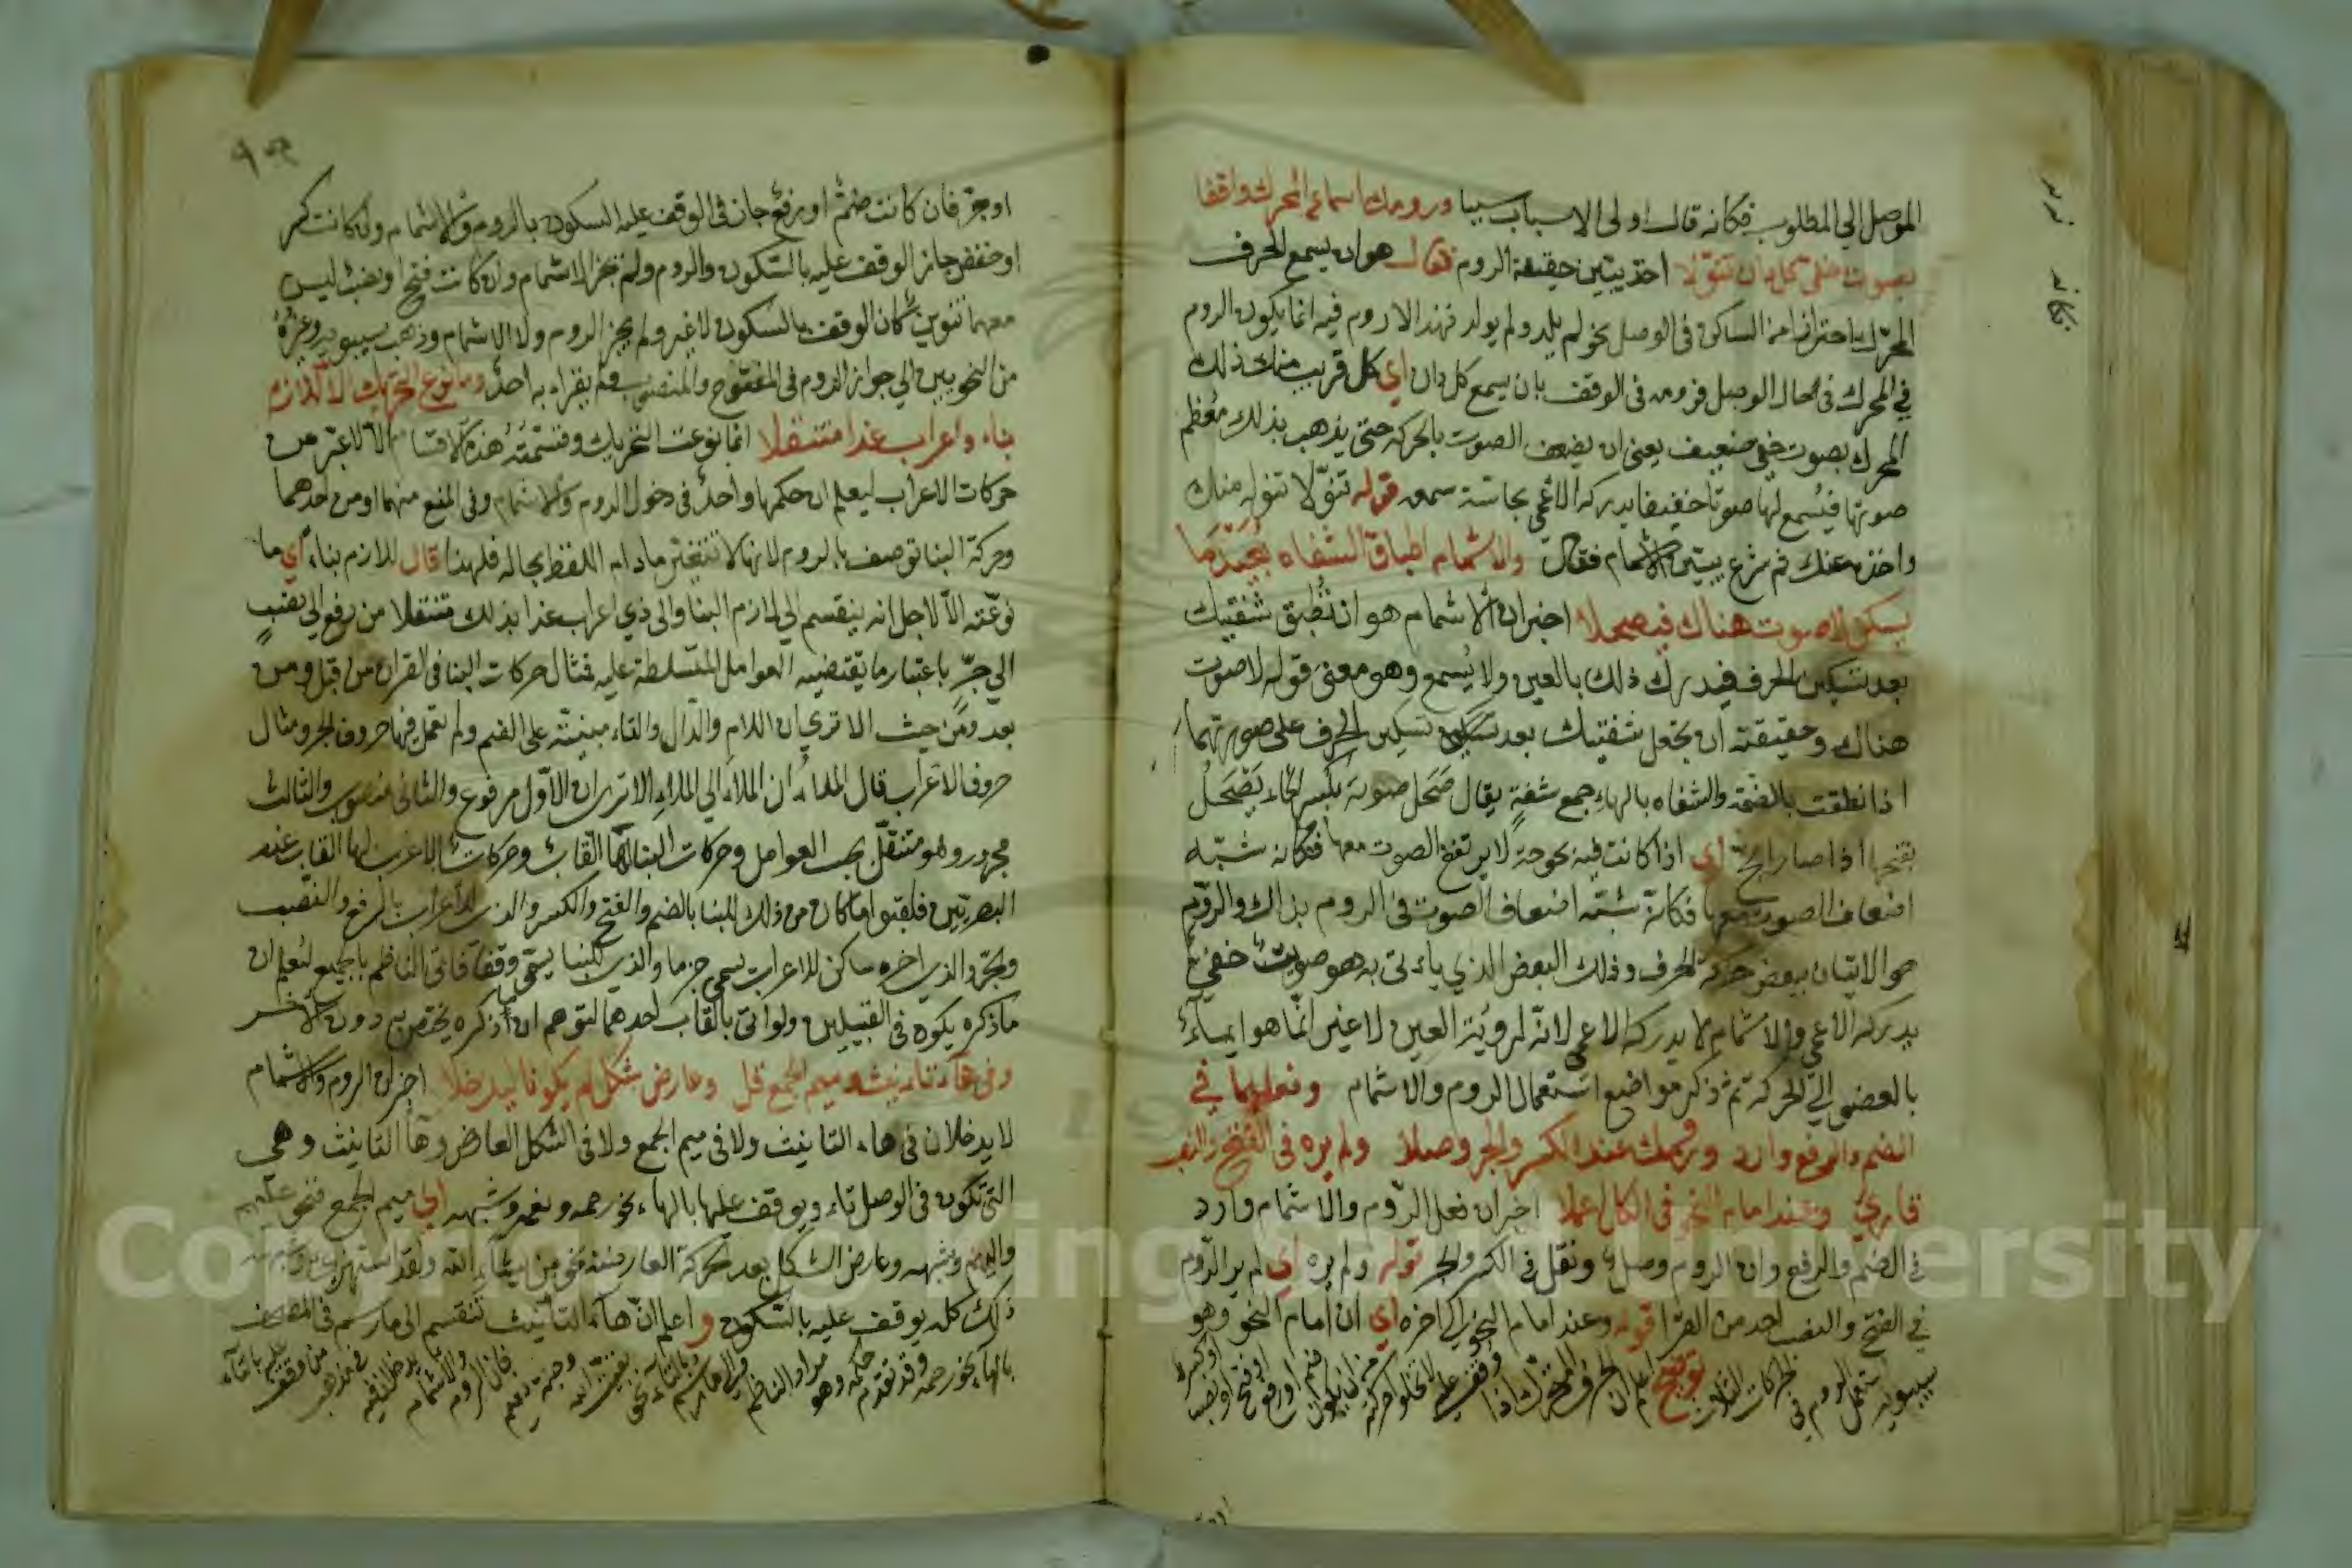 الموصل الي المطلوب فكانه قال اولى الاسباب سببا ورومك اسماع المحرك واقفا
بصوت خفي كل دان تنولا اخذ يبين حقيقة الروم فقال هو ان يسمع الحرف
المحرك احترازا من الساكن في الوصل نحو لم يلد ولم يولد فهذا لا روم فيه انما يكون الروم
في المحرك في حال الوصل فترومه في الوقف بان يسمع كل دان اي كل قريب منك ذلك
المحرك بصوت خفي ضعيف يعنى ان يضعف الصوت بالحركة حتى يذهب بذلك معظم
صوتها فيسمع لها صوتا خفيفا يدركه الاعمى بحاسة سمعه قوله تنولا تنوله منك
واخذه عنك ثم شرع يبين الاشمام فقال والاشمام اطباق الشفاه بعيد ما
يسكن لا صوت هناك فيصحلا اخبر ان الاشمام هو ان تطبق شفتيك
بعد تسكين الحرف فيدرك ذلك بالعين ولا يسمع وهو معنى قوله لا صوت
هناك وحقيقته ان تجعل شفتيك بعد تسكين الحرف على صورتهما
اذا نطقت بالضمة والشفاه بالهاء جمع شفة يقال صحل صوته بكسر الحاء يصحل
بفتحها اذا صار ابح اي اذا كانت فيه بحوحة لا يرتفع الصوت معها فكانه شبه
اضعاف الصوت معها فكانه شبه اضعاف الصوت في الروم بذاك والروم
هو الاتيان ببعض حركة الحرف وذلك البعض الذي ياءتى به هو صويت خفي
يدركه الاعمى والاشمام لا يدركه الاعمى لانه لرؤية العين لا غير انما هو ايماء
بالعضو الي الحركة ثم ذكر مواضع استعمال الروم والاشمام وفعلهما في
الضم والرفع وارد ورومك عند الكسر والجر وصلا ولم يره في الفتح والنصب
قارئ وعند امام النحو في الكل اعملا اخبر ان فعل الروم والاشمام وارد
في الضم والرفع وان الروم وصل ونقل في الكسر والجر قوله ولم يره اي لم ير الروم
في الفتح والنصب احد من القرا قوله وعند امام النحو الى اخره اي ان امام النحو وهو
سيبويه استعمل الروم في الحركات الثلاث توضيح اعلم ان الحرف المتحرك اذا وقف عليه لا تخلوا حركته من ان يكون ضم او رفع او فتح او نصب او كسر
اوجر فان كانت ضمة او رفع جاز في الوقف عليه السكون بالروم والاشمام وان كانت كسر
او خفض جاز الوقف عليه بالسكون والروم ولم يجز الاشمام وان كانت فتح او نصب ليس
معهما تنوين كان الوقف بالسكون لا غير ولم يجز الروم ولا الاشمام وذهب سيبويه وغيره
من النحويين الي جواز الروم في المفتوح والمنصوب ولم يقراء به احد وما نوع التحريك الا للازم
بناء واعراب غدا متنقلا انما نوعت التحريك وقسمته هذه الاقسام الا لاعبر من
حركات الاعراب ليعلم ان حكمها واحد في دخول الروم والاشمام وفي المنع منهما او من احدهما
وحركة البنا توصف باللزوم لانها لا تتغير مادام اللفظ بحاله فلهذا قال للازم بناء اي ما
نوعته الا لاجل انه ينقسم الي لازم البنا والى ذي اعراب غدا بذلك متنقلا من رفع الي نصب
الي جر باعتبار ما يقتضيه العوامل المتسلطة عليه فمثال حركات البنا في القران من قبل ومن
بعد ومن حيث الا ترى ان اللام والدال والثاء مبنية على الضم ولم تعمل فيها حروف الجر ومثال
حروف الاعراب قال الملاء ان الملاء الي الملاء الا ترى ان الاول مرفوع والثانى منصوب والثالث
مجرور وهو متنقل بحسب العوامل وحركات البنا لها القاب وحركات الاعراب لها القاب عند
البصريين فلقبوا ما كان من ذلك للبنا بالضم والفتح والكسر والذي للاعراب بالرفع والنصب
والجر والذي اخره ساكن للاعراب يسمى جزما والذي للبنا يسمى وقفا فاتى الناظم بالجميع ليعلم ان
ما ذكره يكون في القبيلين ولو اتى بالقاب احدهما لتوهم ان ما ذكره يختص به دون الاخر
وفي هاء تانيث وميم الجمع قل وعارض شكل لم يكونا ليدخلا اخبر ان الروم والاشمام
لا يدخلان في هاء التانيث ولا في ميم الجمع ولا في الشكل العارض وها التانيث وهي
التي تكون في الوصل تاء ويوقف عليها بالهاء نحو رحمه ونعمه وشبهه اي ميم الجمع فنحو عليهم
واليهم وشبهه وعارض الشكل بعد حركة العارضة نحو من يشاء الله ولقد استهزئ وشبهه
ذلك كله يوقف عليه بالسكون واعلم ان هاء التانيث تنقسم الى ما رسم في المصحف
بالهاء نحو رحمه وقد تقدم حكمه وهو مراد الناظم والى ما رسم بالتاء نحو بقيت الله وجنت نعيم فان الروم والاشمام يدخلان فيه في مذهب من وقف عليه بالتاء